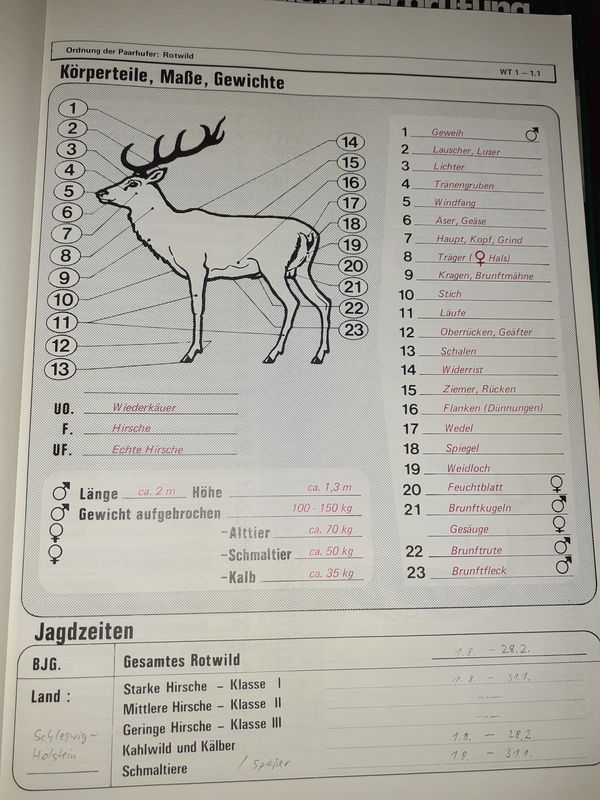 Ordnung der Paarhufer: Rotwild
WT 1 – 1.1
Körperteile, Maße, Gewichte
1
2
3
4
5
6
7
8
9
10
11
12
13
14
15
16
17
18
19
20
21
22
23
1 Geweih ♂
2 Lauscher, Luser
3 Lichter
4 Tränengruben
5 Windfang
6 Äser, Geäse
7 Haupt, Kopf, Grind
8 Träger (♀ Hals)
9 Kragen, Brunftmähne
10 Stich
11 Läufe
12 Oberrücken, Geäfter
13 Schalen
14 Widerrist
15 Ziemer, Rücken
16 Flanken (Dünnungen)
17 Wedel
18 Spiegel
19 Weidloch
20 Feuchtblatt ♀
21 Brunftkugeln ♂
Gesäuge ♀
22 Brunftrute ♂
23 Brunftfleck ♂
UO. Wiederkäuer
F. Hirsche
UF. Echte Hirsche
♂ Länge ca. 2 m Höhe ca. 1,3 m
♂ Gewicht aufgebrochen 100 - 150 kg
♀ -Alttier ca. 70 kg
♀ -Schmaltier ca. 50 kg
-Kalb ca. 35 kg
Jagdzeiten
BJG. Gesamtes Rotwild 1.8. – 28.2.
Land :
Schleswig-
Holstein
Starke Hirsche – Klasse I 1.8. – 31.1.
Mittlere Hirsche – Klasse II
Geringe Hirsche – Klasse III
Kahlwild und Kälber 1.9. – 28.2.
Schmaltiere / Spießer 1.8. – 31.1.